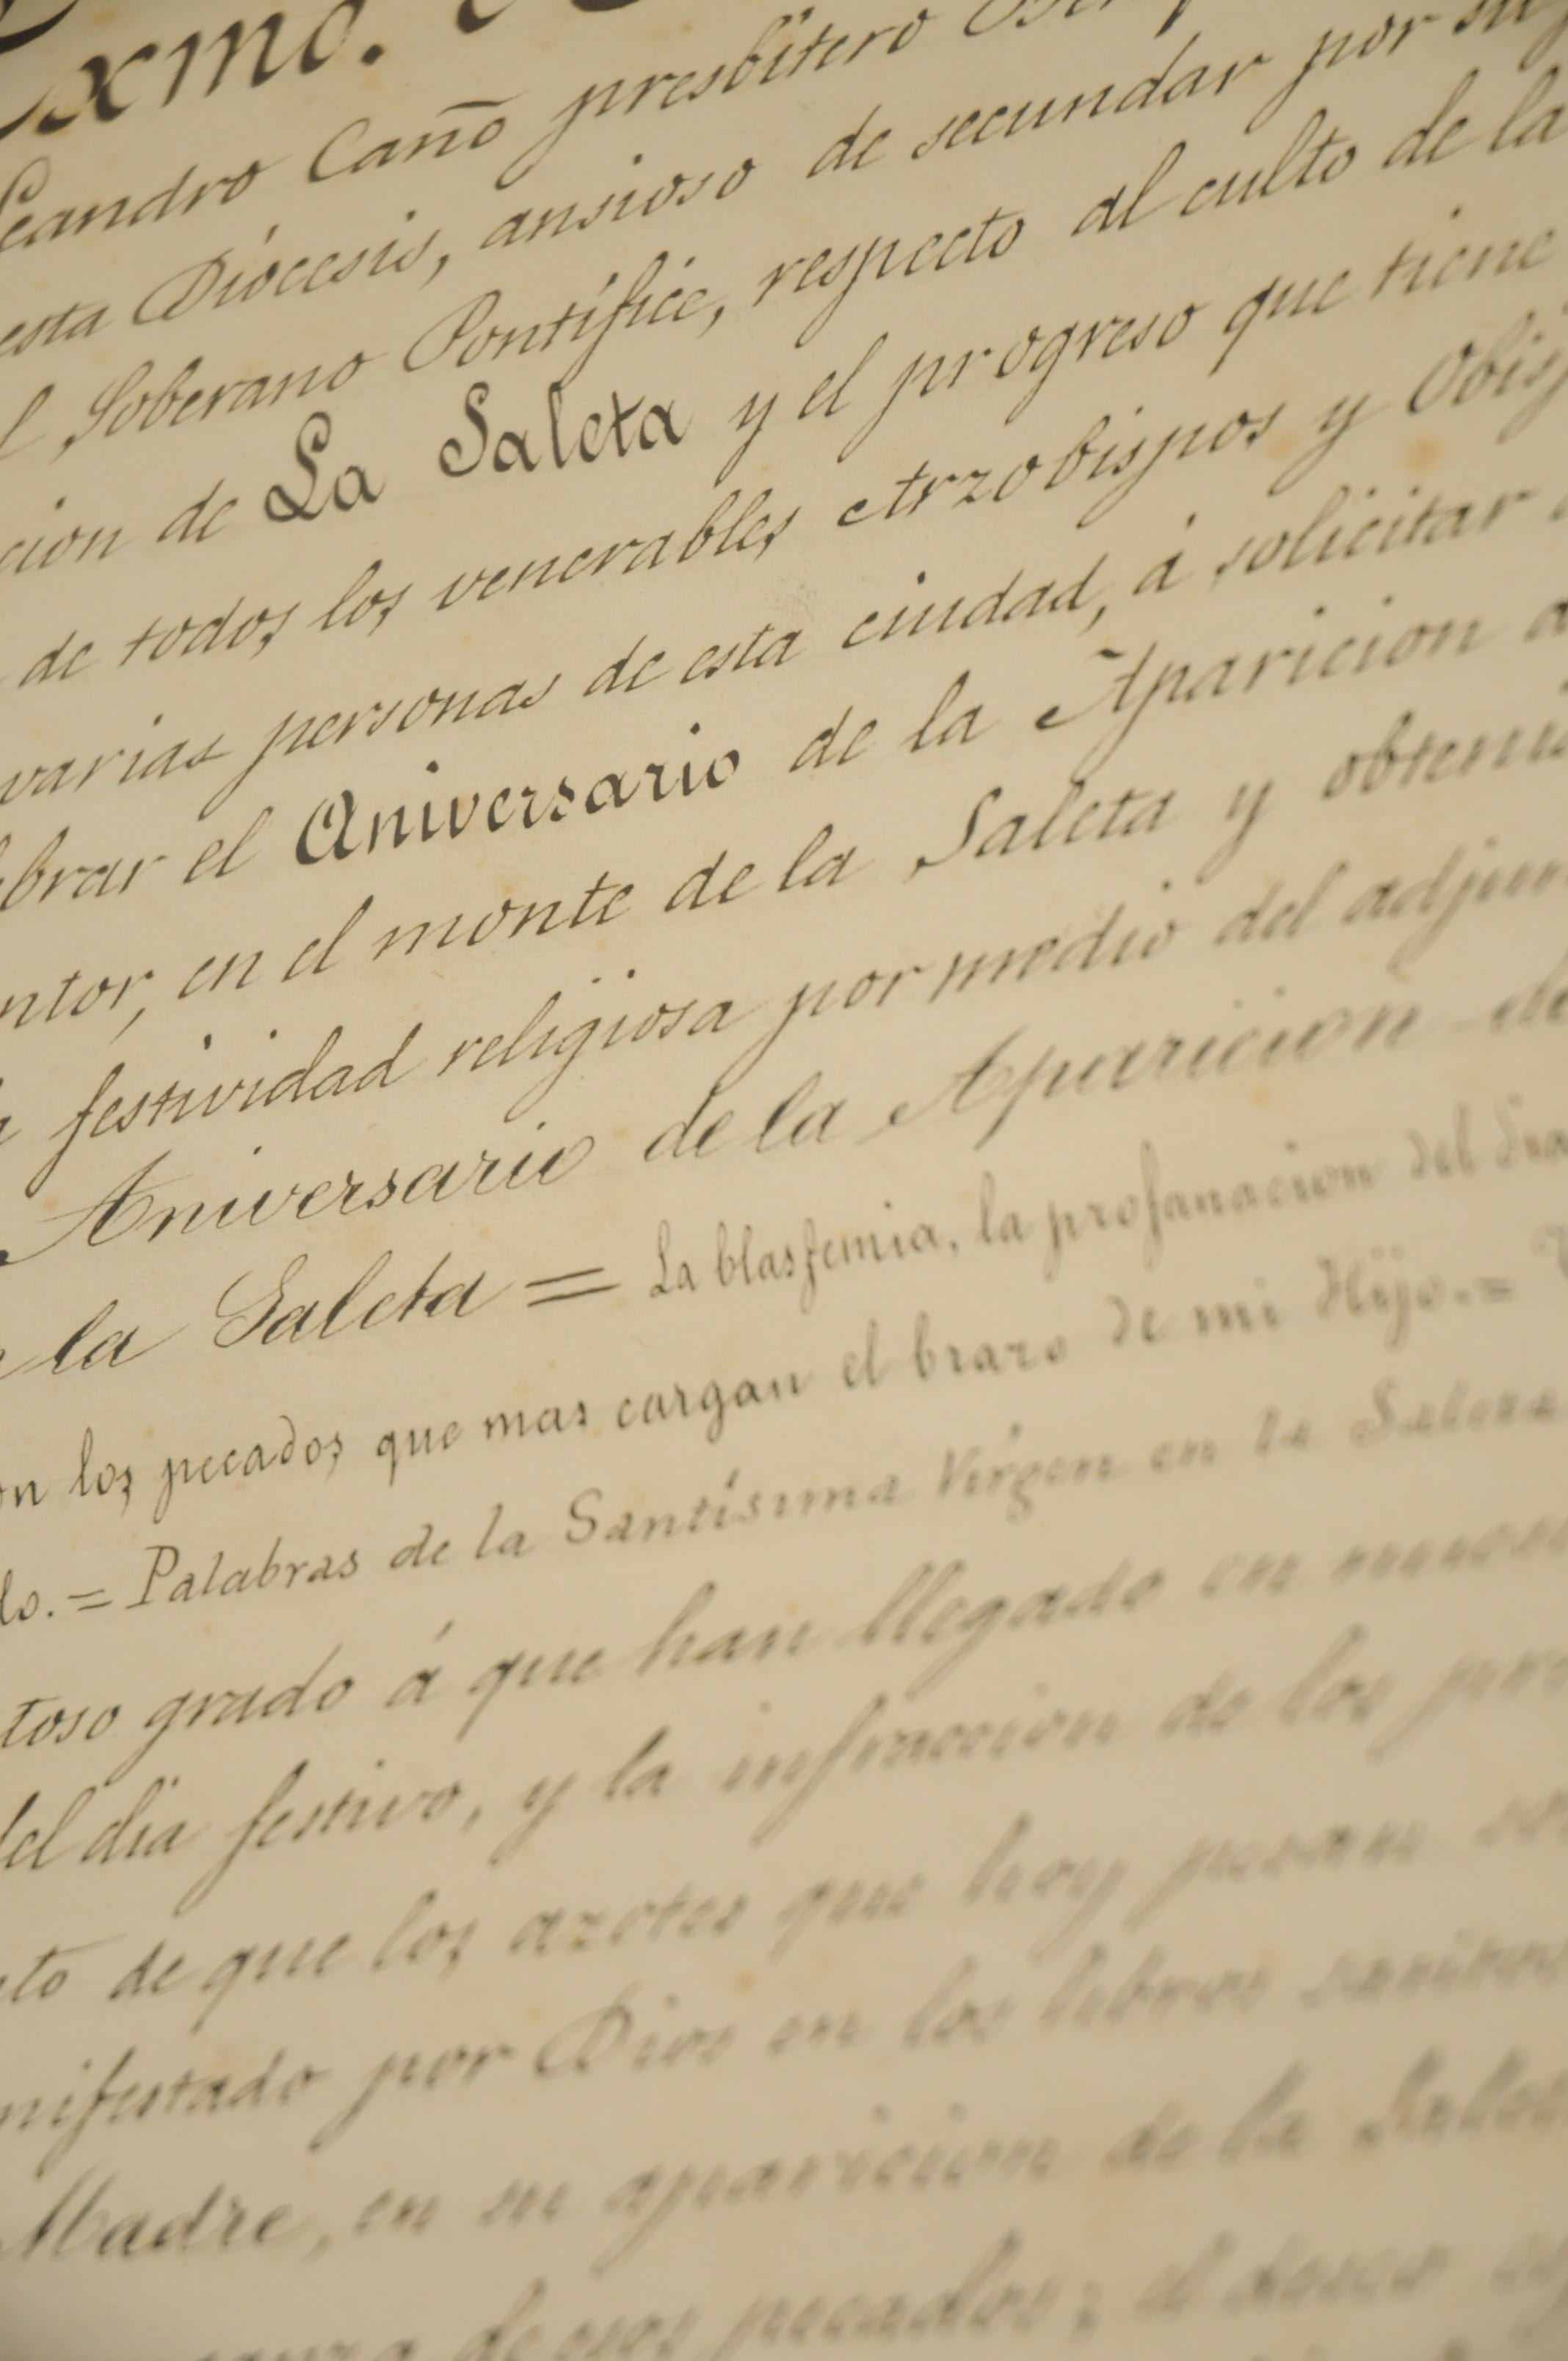 Exmo.
Leandro Caño presbítero
esta Diócesis, ansioso de secundar por su
l Soberano Pontífice, respecto al culto de la
cion de La Saleta y el progreso que tiene
de todos los venerables Arzobispos y Obisp
varias personas de esta ciudad, á solicitar
brar el Aniversario de la Aparicion
ntor, en el monte de la Saleta y obtener
festividad religiosa por medio del adjun
Aniversario de la Aparicion de
la Saleta = La blasfemia, la profanacion del
on los pecados que mas cargan el brazo de mi Hijo. =
do. = Palabras de la Santísima Vírgen en la Saleta
toso grado á que han llegado en
del dia festivo, y la infraccion de los pre
to de que los azotes que hoy pesan so
nifestado por Dios en los libros santos
Madre, en su aparicion de la Saleta
de esos pecados; el deseo